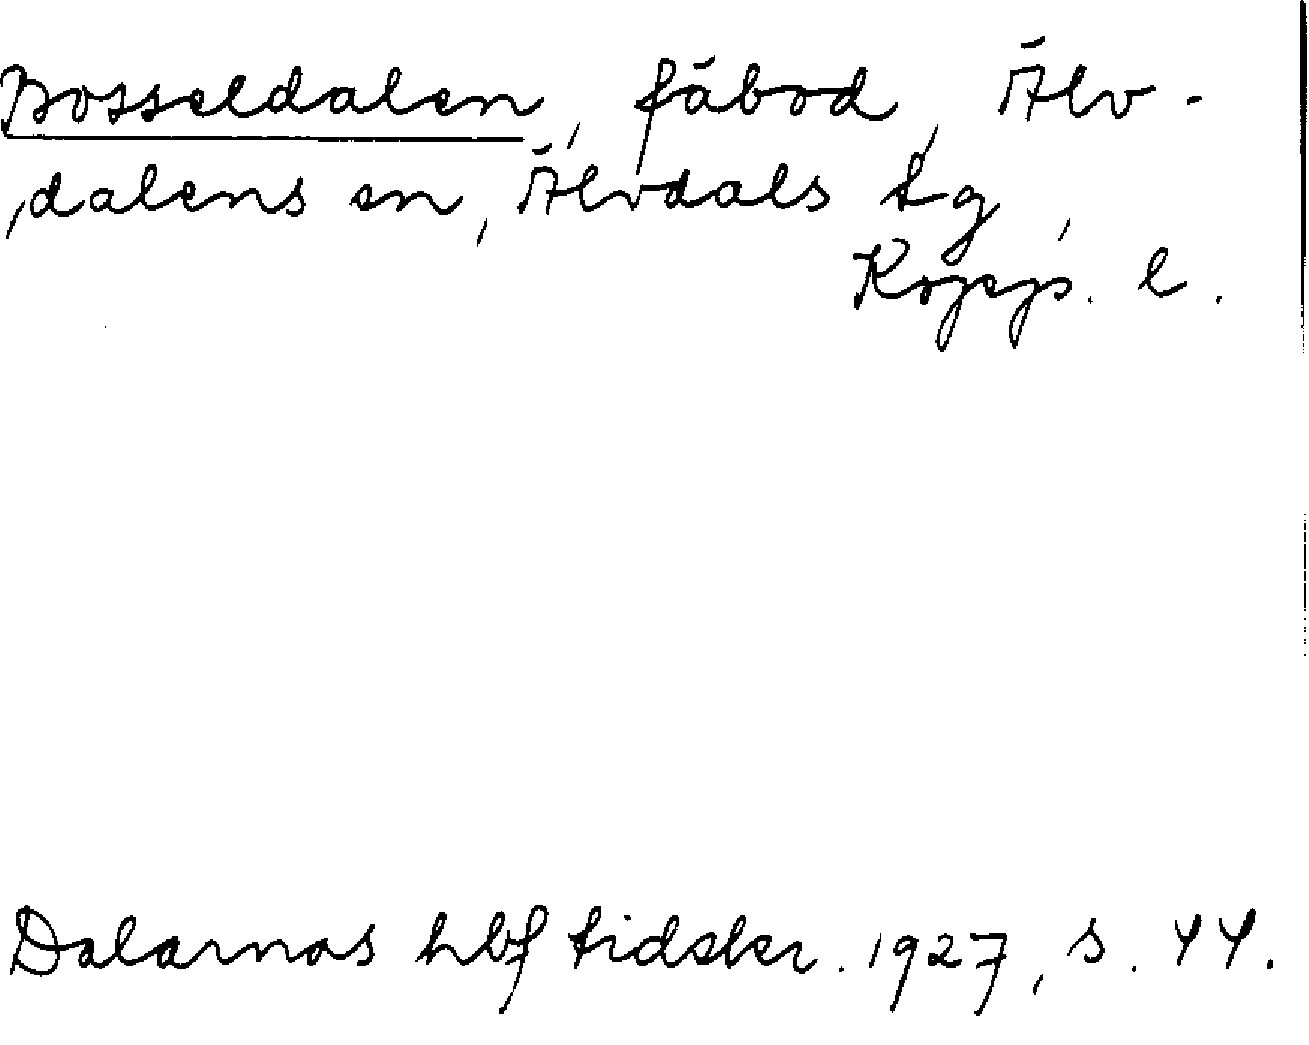 Bosseldalen, fäbod, Älv-
dalens sn, Älvdals tg,
Kopp. l.
Dalarnas hbf tidskr. 1927, s. 44.